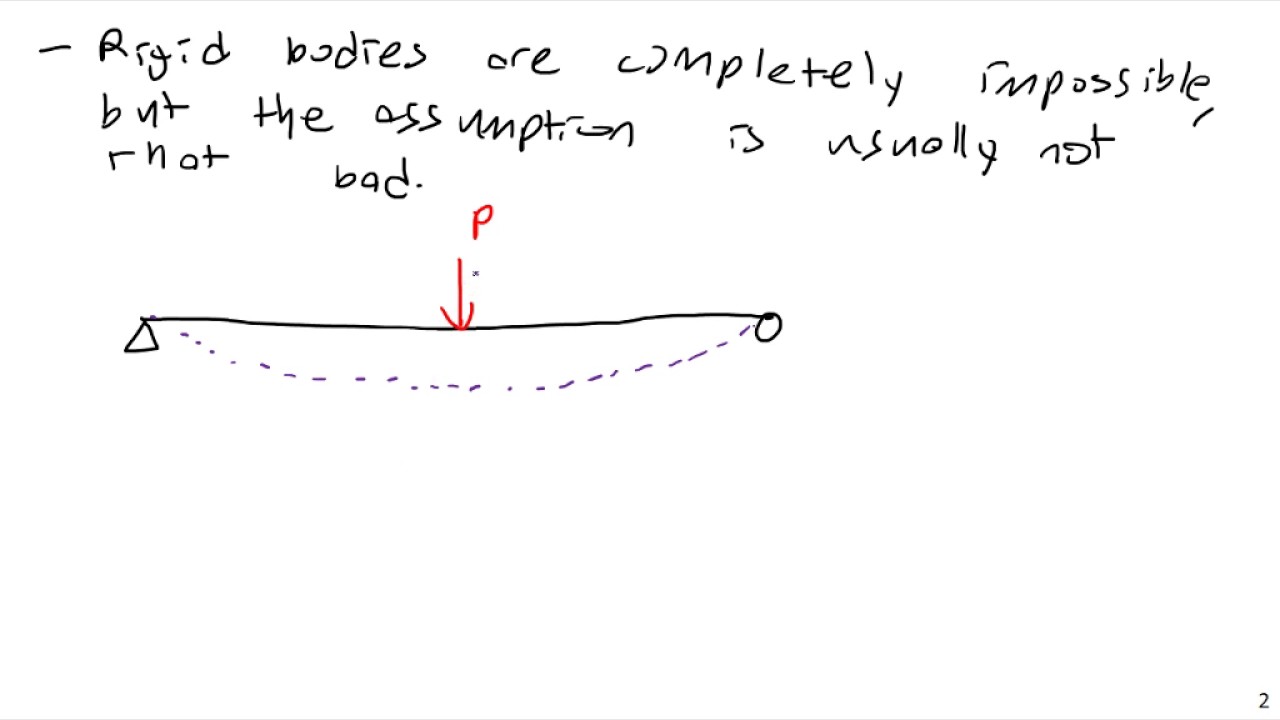 - Rigid bodies are completely impossible,
but the assumption is usually not
that bad.
P
2